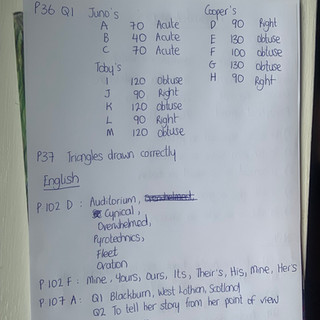 P36 Q1 Juno's
A 70 Acute
B 40 Acute
C 70 Acute
Cooper's
D 90 Right
E 130 obtuse
F 100 obtuse
G 130 obtuse
H 90 Right
Toby's
I 120 Obtuse
J 90 Right
K 120 obtuse
L 90 Right
M 120 obtuse
P37 Triangles drawn correctly
English
P102 D : Auditorium,
Cynical,
Overwhelmed,
Pyrotechnics,
Fleet
Ovation
P102 F : Mine, Yours, Ours, Its, Their's, His, Mine, Hers
P107 A : Q1 Blackburn, West Lothian, Scotland
Q2 To tell her story from her point of view